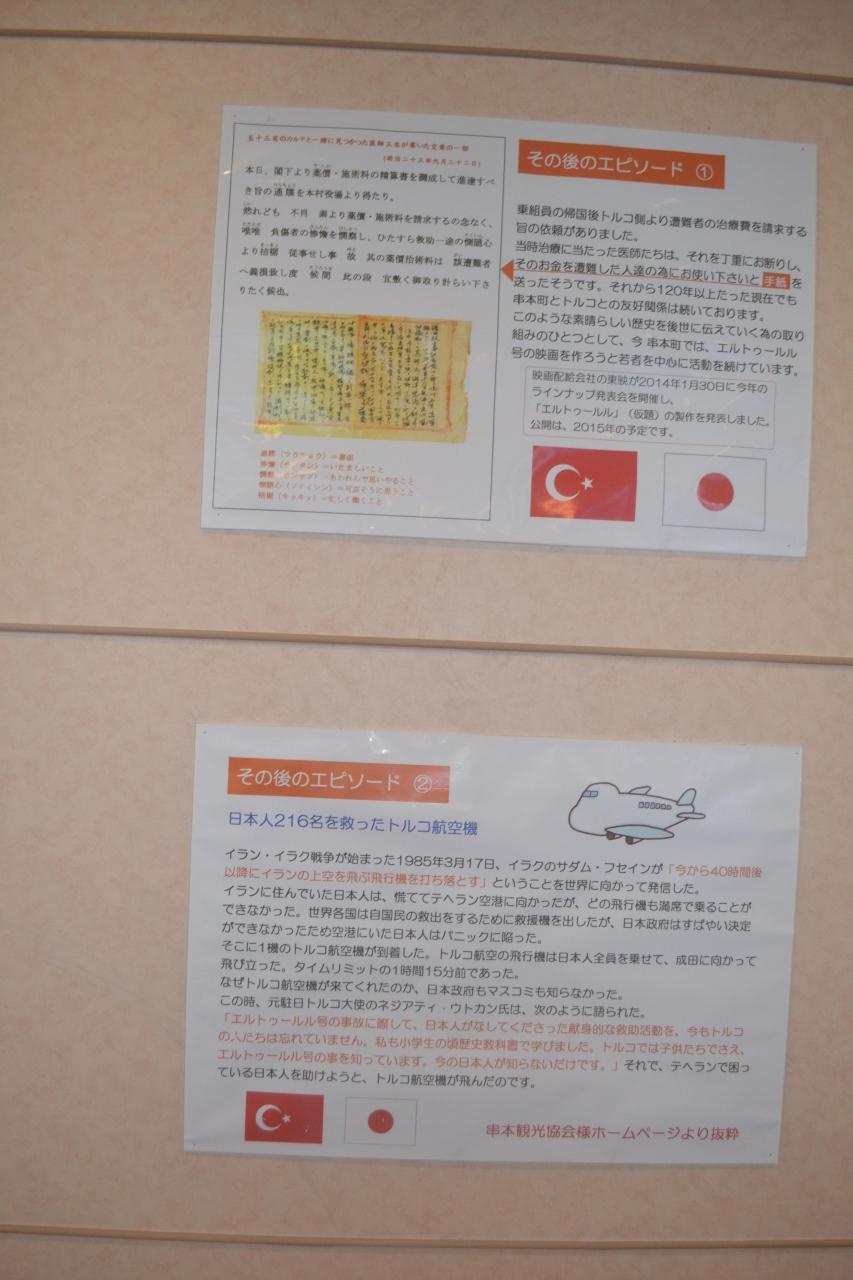 五十三名のカルテと一緒に見つかった医師三名が書いた文章の一部
(明治二十三年九月二十二日)
本日、閣下より薬價・施術料の精算書を調成して進達すべ
き旨の通牒を本村役場より得たり。
然れども 不肖 素より薬價・施術料を請求するの念なく、
唯唯 負傷者の惨憺を憫察し、ひたすら救助一途の惻隠心
より拮据 従事せし事 故 其の薬價施術料は 該遭難者
へ義捐致し度 候間 此の段 宜敷く御取り計らい下さ
りたく候也。
通牒(ツウチョウ)=書面
惨憺(サンタン)=いたましいこと
憫察(ビンサツ)=あわれんで思いやること
惻隠心(ソクインシン)=可哀そうに思うこと
拮据(キッキョ)=忙しく働くこと
その後のエピソード ①
乗組員の帰国後トルコ側より遭難者の治療費を請求する
旨の依頼がありました。
当時治療に当たった医師たちは、それを丁重にお断りし、
そのお金を遭難した人達の為にお使い下さいと手紙を
送ったそうです。それから120年以上たった現在でも
串本町とトルコとの友好関係は続いております。
このような素晴らしい歴史を後世に伝えていく為の取り
組みのひとつとして、今 串本町では、エルトゥールル
号の映画を作ろうと若者を中心に活動を続けています。
映画配給会社の東映が2014年1月30日に今年の
ラインナップ発表会を開催し、
「エルトゥールル」(仮題)の製作を発表しました。
公開は、2015年の予定です。
その後のエピソード ②
日本人216名を救ったトルコ航空機
イラン・イラク戦争が始まった1985年3月17日、イラクのサダム・フセインが「今から40時間後
以降にイランの上空を飛ぶ飛行機を打ち落とす」ということを世界に向かって発信した。
イランに住んでいた日本人は、慌ててテヘラン空港に向かったが、どの飛行機も満席で乗ることが
できなかった。世界各国は自国民の救出をするために救援機を出したが、日本政府はすばやい決定
ができなかったため空港にいた日本人はパニックに陥った。
そこに1機のトルコ航空機が到着した。トルコ航空の飛行機は日本人全員を乗せて、成田に向かって
飛び立った。タイムリミットの1時間15分前であった。
なぜトルコ航空機が来てくれたのか、日本政府もマスコミも知らなかった。
この時、元駐日トルコ大使のネジアティ・ウトカン氏は、次のように語られた。
「エルトゥールル号の事故に際して、日本人がなしてくださった献身的な救助活動を、今もトルコ
の人たちは忘れていません。私も小学生の頃歴史教科書で学びました。トルコでは子供たちでさえ、
エルトゥールル号の事を知っています。今の日本人が知らないだけです。」それで、テヘランで困っ
ている日本人を助けようと、トルコ航空機が飛んだのです。
串本観光協会様ホームページより抜粋